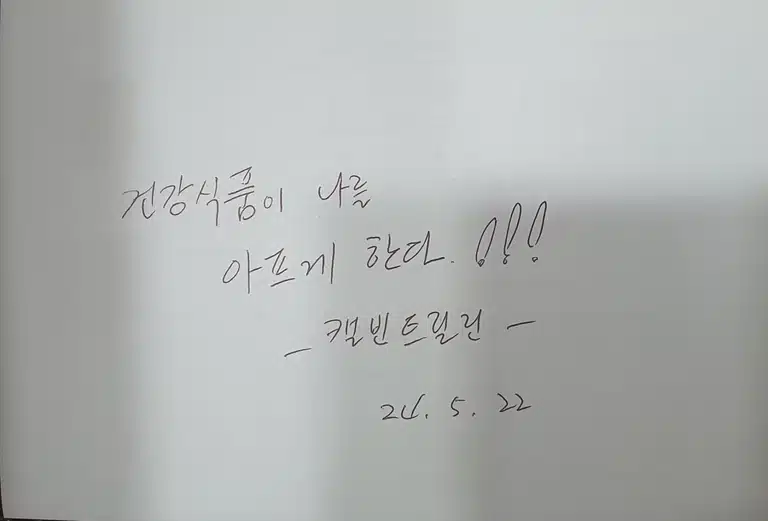 건강식품이 나를
아프게 한다. !!!
- 캘빈트릴린 -
24. 5. 22